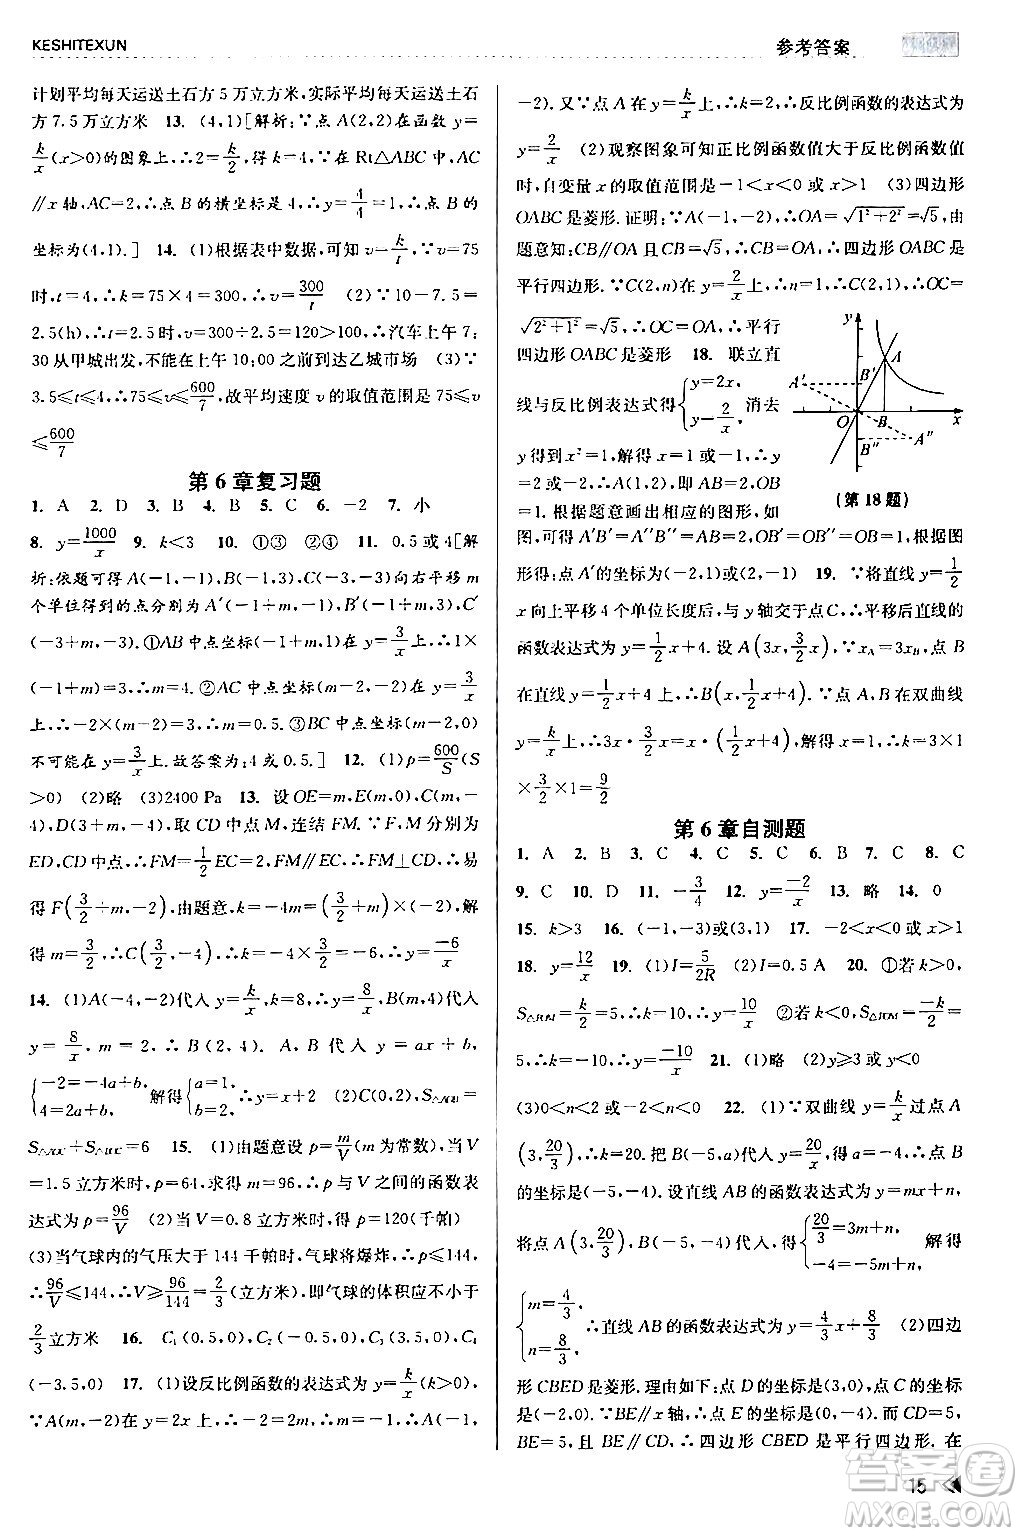 KESHITEXUN
参考答案
计划平均每天运送土石方 5 万立方米,实际平均每天运送土石
方 7.5 万立方米 13. (4,1)[解析:∵点 A(2,2)在函数 y=
k/x(x>0)的图象上,∴2=k/2,得 k=4,∵在 Rt△ABC 中,AC
∥x 轴,AC=2,∴点 B 的横坐标是 4,∴y=4/4=1,∴点 B 的
坐标为(4,1).] 14. (1)根据表中数据,可知 v=k/t,∵v=75
时,t=4,∴k=75×4=300,∴v=300/t (2)∵10-7.5=
2.5(h),∴t=2.5时,v=300÷2.5=120>100,∴汽车上午 7:
30 从甲城出发,不能在上午 10:00 之前到达乙城市场 (3)∵
3.5≤t≤4,∴75≤v≤600/7,故平均速度 v 的取值范围是 75≤v
≤600/7
第 6 章复习题
1. A 2. D 3. B 4. B 5. C 6. -2 7. 小
8. y=1000/x 9. k<3 10. ①③ ②④ 11. 0.5 或 4[解
析:依题可得 A(-1,-1),B(-1,3),C(-3,3)向右平移 m
个单位得到的点分别为 A′(-1+m,-1),B(-1+m,3),C′
(-3+m,3).①AB 中点坐标(-1+m,1)在 y=3/x上,∴1×
(-1+m)=3,∴m=4.②AC 中点坐标(-2+m,1)在 y=3/x
上,∴-2×(m-2)=3,∴m=0.5.③BC 中点坐标(m-2,0)
不可能在 y=3/x上.故答案为:4 或 0.5.] 12. (1)p=600/S(S
>0) (2)略 (3)2400 Pa 13. 设 OE=m,E(m,0),C(m,-
4),D(3+m,0),取 CD 中点 M,连结 FM.∵F,M 分别为
ED,CD 中点,∴FM=1/2EC=2,FM∥EC,∴FM⊥CD,∴可
得 F(3/2+m,-2),由题意,得 k=-4m=-2(3/2+m),解
得 m=3/2,∴C(3/2,-4),∴k=-4×(3/2)=-6,∴y=-6/x
14. (1)A(-4,-2)代入 y=k/x,k=8,∴y=8/x,B(m,4)代入
y=8/x,m=2,∴B(2,4). A,B 代入 y=ax+b,
{-2=-4a+b, 4=2a+b, 解得{a=1, b=2, ∴y=x+2 (2)C(0,2),S△AOB=
S△AOC+S△BOC=6 15. (1)由题意设 p=m/V(m 为常数),当 V
=1.5 立方米时,p=64,求得 m=96,∴p 与 V 之间的函数表
达式为 p=96/V (2)当 V=0.8 立方米时,得 p=120(千帕)
(3)当气球内的气压大于 144 千帕时,气球将爆炸,∴p≤144,
∴96/V≤144,∴V≥96/144=2/3(立方米),∴气球的体积应不小于
2/3立方米 16. C₁(0.5,0),C₂(-0.5,0),C₃(3.5,0),C₄
(-3.5,0) 17. (1)设反比例函数的表达式为 y=k/x(k>0),
∵A(m,-2)在 y=2x 上,∴-2=2m,∴m=-1,∴A(-1,
-2).又∵点 A 在 y=k/x上,∴k=2,∴反比例函数的表达式为
y=2/x (2)观察图象可知正比例函数值大于反比例函数值
时,自变量 x 的取值范围是 -1<x<0 或 x>1 (3)四边形
OABC 是菱形.证明:∵A(-1,-2),∴OA=√(1²+2²)=√5,由
题意知:CB∥OA 且 CB=√5,∴CB=OA,∴四边形 OABC 是
平行四边形.∵C(2,n)在 y=2/x上,∴n=1,∴C(2,1),OC=
√(2²+1²)=√5,∴OC=OA,∴平行
四边形 OABC 是菱形 18. 联立直
线与反比例表达式得{y=2x, y=2/x, 消去
y 得到 x²=1,解得 x=1 或-1,∴y
=2 或-2,∴A(1,2),即 AB=2,OB
=1.根据题意画出相应的图形,如
图,可得 A′B′=A″B″=AB=2,OB′=OB″=OB=1,根据图
形得:点 A′的坐标为(-2,1)或(2,-1) 19. ∵将直线 y=1/2
x 向上平移 4 个单位长度后,与 y 轴交于点 C,∴平移后直线的
函数表达式为 y=1/2x+4.设 A(3x,3/2x),∵xA=3xB,点 B
在直线 y=1/2x+4 上,∴B(x,1/2x+4).∵点 A,B 在双曲线
y=k/x上,∴3x·3/2x=x·(1/2x+4),解得 x=1,∴k=3×1
×3/2×1=9/2
y
A
A′
B′
O
B
x
B″
A″
(第 18 题)
第 6 章自测题
1. A 2. B 3. C 4. C 5. C 6. B 7. C 8. C
9. C 10. D 11. -3/4 12. y=-2/x 13. 略 14. 0
15. k>3 16. (-1,-3)或(3,1) 17. -2<x<0 或 x>1
18. y=12/x 19. (1)I=5/2R (2)I=0.5 A 20. ①若 k>0,
=k/2=5,∴k=10,∴y=10/x ②若 k<0,=-k/2=
5,∴k=-10,∴y=-10/x 21. (1)略 (2)y≥3 或 y<0
(3)0<n<2 22. (1)∵双曲线 y=k/x过点 A
(3,20/3),∴k=20.把 B(-5,a)代入 y=20/x,得 a=-4,∴点 B
的坐标是(-5,-4).设直线 AB 的函数表达式为 y=mx+n,
将点 A(3,20/3),B(-5,-4)代入得,{20/3=3m+n, -4=-5m+n, 解得
{m=4/3, n=8/3, ∴直线 AB 的函数表达式为 y=4/3x+8/3 (2)四边
形 CBED 是菱形.理由如下:点 D 的坐标是(3,0),点 C 的坐标是
(-2,0).∵BE∥x 轴,∴点 E 的坐标是(0,-4).而 CD=5,
BE=5,且 BE∥CD,∴四边形 CBED 是平行四边形.在
15
答案圈
MXQE.COM